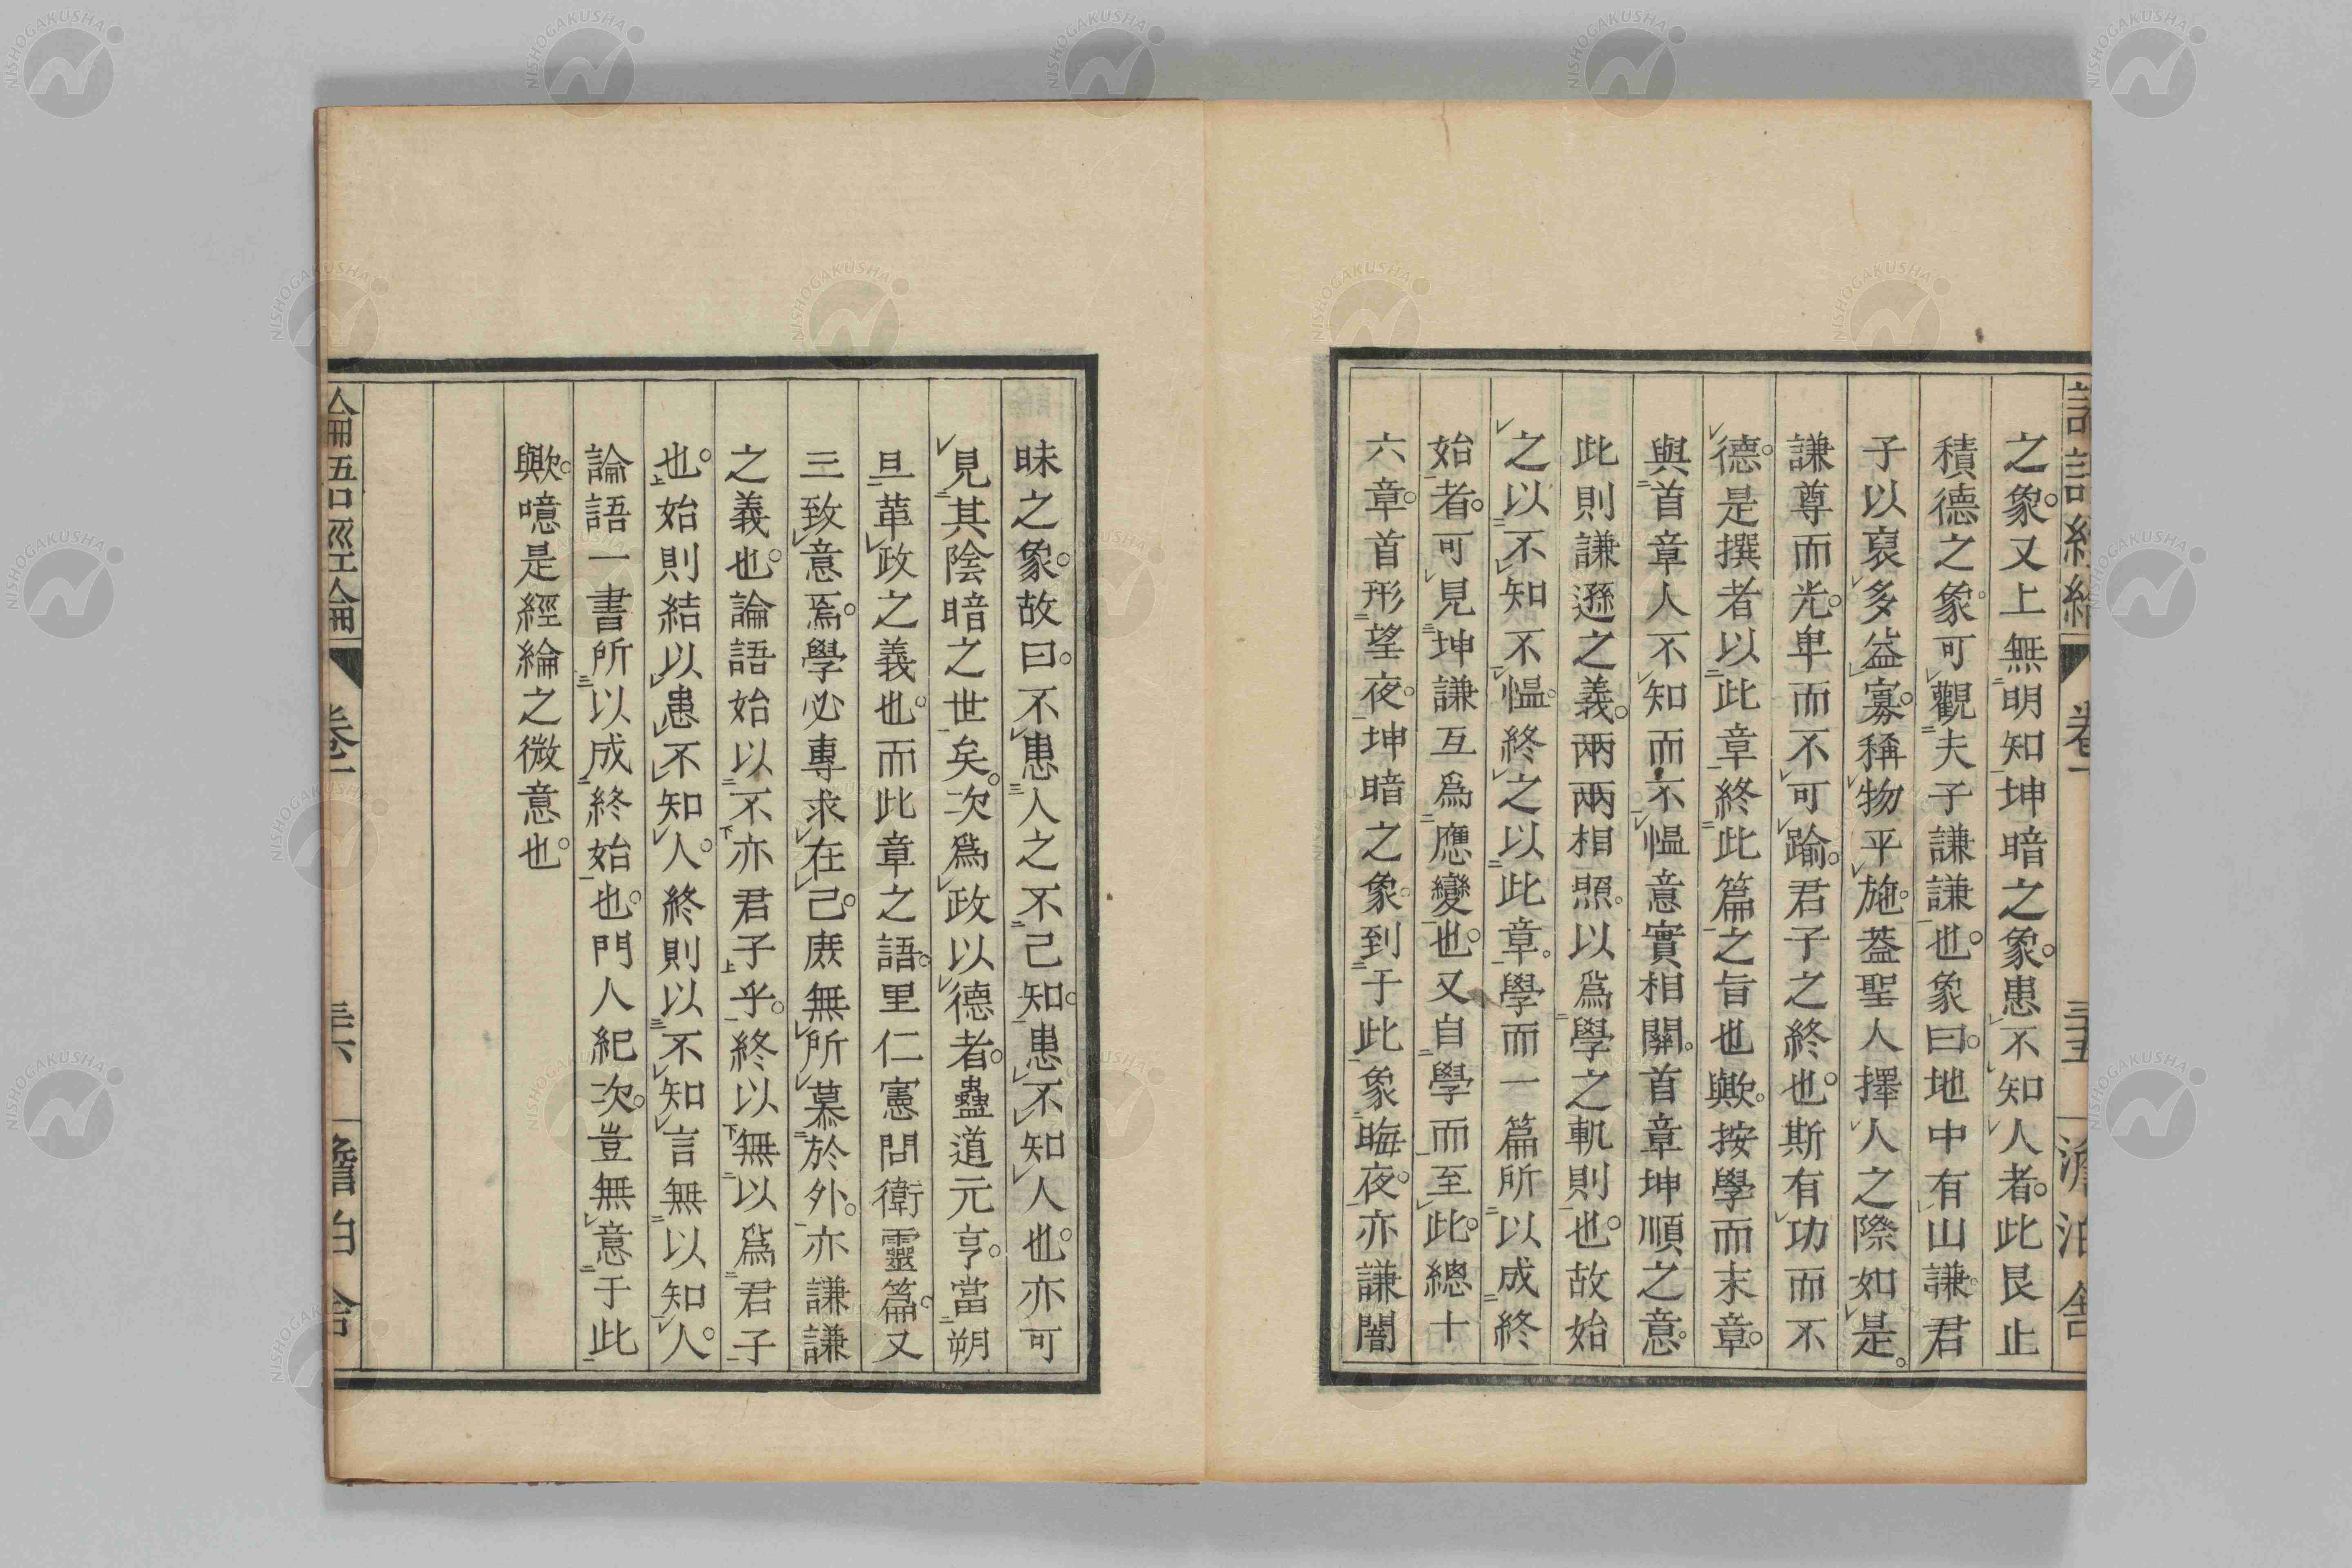 之象。又上無明知坤暗之象。患不知人者。此艮止
積德之象。可觀夫子謙謙也。象曰。地中有山謙。君
子以裒多益寡。稱物平施。蓋聖人擇人之際如是。
謙尊而光。卑而不可踰。君子之終也。斯有功而不
德。是撰者以此章終此篇之旨也歟。按學而末章。
與首章人不知而不慍意實相關。首章坤順之意。
此則謙遜之義。兩兩相照。以爲學之軌則也。故始
之以不知不慍。終之以此章。學而一篇所以成終
始者。可見坤謙互爲應變也。又自學而至此。總十
六章。首形望夜。坤暗之象。到于此象晦夜。亦謙闇
昧之象。故曰。不患人之不己知。患不知人也。亦可
見其陰暗之世矣。次爲政以德者。蠱道元亨。當朔
旦革政之義也。而此章之語。里仁憲問衛靈篇。又
三致意焉。學必專求在己。庶無所慕於外。亦謙謙
之義也。論語始以不亦君子乎。終以無以爲君子
也。始則結以患不知人。終則以不知言無以知人。
論語一書所以成終始也。門人紀次。豈無意于此
歟。噫是經綸之微意也。
論語經綸
卷一
澹泊舍